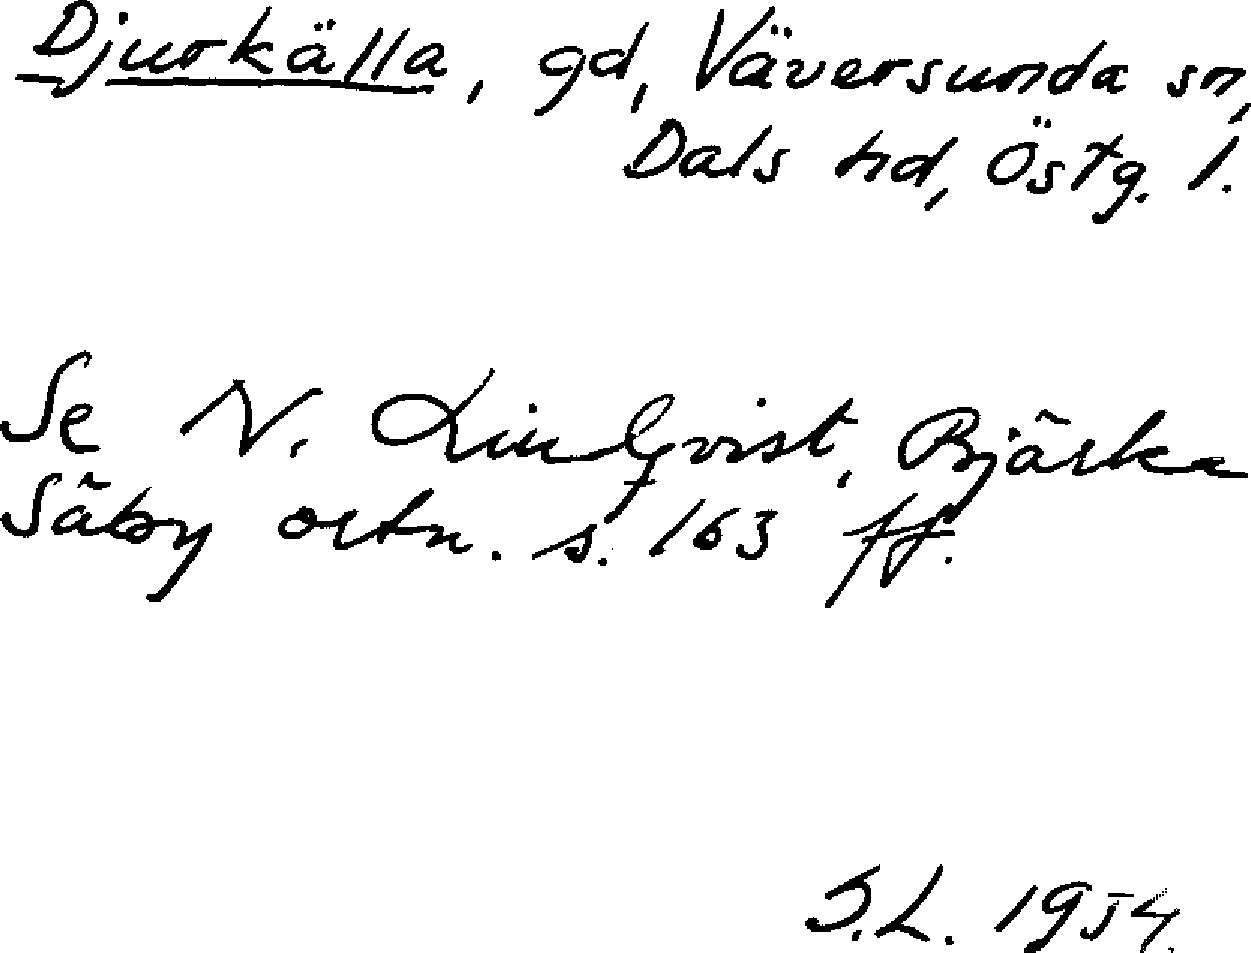 Djurkälla, gd, Väversunda sn,
Dals hd, Östg. l.
Se N. Lindqvist, Bjärka
Säby ortn. s. 163 ff.
S.L. 1954.